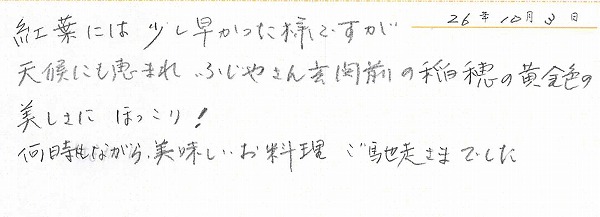 26年10月3日
紅葉には少し早かった様ですが
天候にも恵まれ、ふじやさん玄関前の稲穂の黄金色の
美しさにほっこり!
何時もながら、美味しいお料理ご馳走さまでした